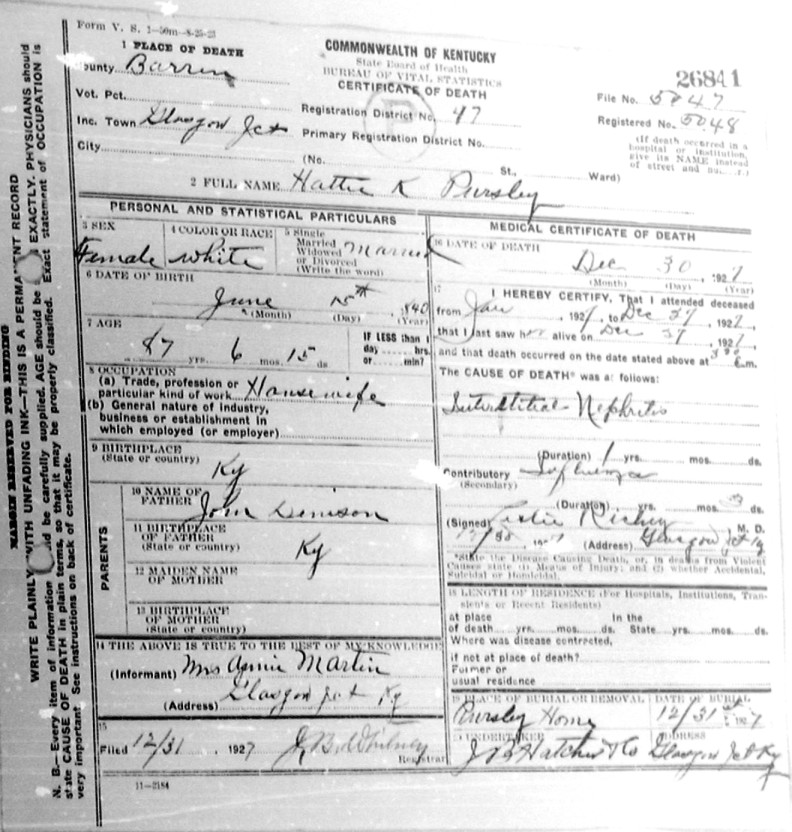 Form V. S. 1-50m-8-25-23
1 PLACE OF DEATH
County Barren
Vot. Pct.
Inc. Town Glasgow Jct
City
COMMONWEALTH OF KENTUCKY
State Board of Health
BUREAU OF VITAL STATISTICS
CERTIFICATE OF DEATH
Registration District No. 47
Primary Registration District No.
(No. St., Ward)
26841
File No. 5747
Registered No. 5048
(If death occurred in a
hospital or institution,
give its NAME instead
of street and
2 FULL NAME Hattie K Pursley
PERSONAL AND STATISTICAL PARTICULARS
3 SEX
Female
4 COLOR OR RACE
White
5 Single
Married
Widowed
or Divorced
(Write the word)
Married
6 DATE OF BIRTH
June 15th, 1840
(Month) (Day) (Year)
7 AGE
87 yrs. 6 mos. 15 ds
IF LESS than 1
day hrs.
or min?
8 OCCUPATION
(a) Trade, profession or
particular kind of work Housewife
(b) General nature of industry,
business or establishment in
which employed (or employer)
9 BIRTHPLACE
(State or country)
Ky
PARENTS
10 NAME OF
FATHER John Denison
11 BIRTHPLACE
OF FATHER
(State or country) Ky
12 MAIDEN NAME
OF MOTHER
13 BIRTHPLACE
OF MOTHER
(State or country)
14 THE ABOVE IS TRUE TO THE BEST OF MY KNOWLEDGE
(Informant) Mrs Annie Martin
(Address) Glasgow Jct Ky
15
Filed 12/31 1927 J. B. Whitney
Registrar
11-2184
MEDICAL CERTIFICATE OF DEATH
16 DATE OF DEATH
Dec 30, 1927
(Month) (Day) (Year)
17
I HEREBY CERTIFY, That I attended deceased
from Jan, 1927, to Dec, 1927,
that I last saw her alive on Dec, 1927,
and that death occurred on the date stated above at m.
The CAUSE OF DEATH* was as follows:
Interstitial Nephritis
(Duration) 1 yrs. mos. ds.
Contributory Influenza
(Secondary)
(Duration) yrs. mos. 3 ds.
(Signed) Leslie M. D.
(Address) Glasgow Jct Ky
*State the Disease Causing Death, or, in deaths from Violent
Causes state (1) Means of Injury; and (2) whether Accidental,
Suicidal or Homicidal.
18 LENGTH OF RESIDENCE (For Hospitals, Institutions, Tran-
sients or Recent Residents)
at place In the
of death yrs. mos. ds. State yrs. mos. ds.
Where was disease contracted,
if not at place of death?
Former or
usual residence
19 PLACE OF BURIAL OR REMOVAL
Pursley Home
DATE OF BURIAL
12/31st, 1927
20 UNDERTAKER
J B Hatcher & Co
ADDRESS
Glasgow Jct Ky
MARGIN RESERVED FOR BINDING
WRITE PLAINLY WITH UNFADING INK—THIS IS A PERMANENT RECORD
N. B.—Every item of information should be carefully supplied. AGE should be EXACTLY. PHYSICIANS should
state CAUSE OF DEATH in plain terms, so that it may be properly classified. Exact statement of OCCUPATION is
very important. See instructions on back of certificate.